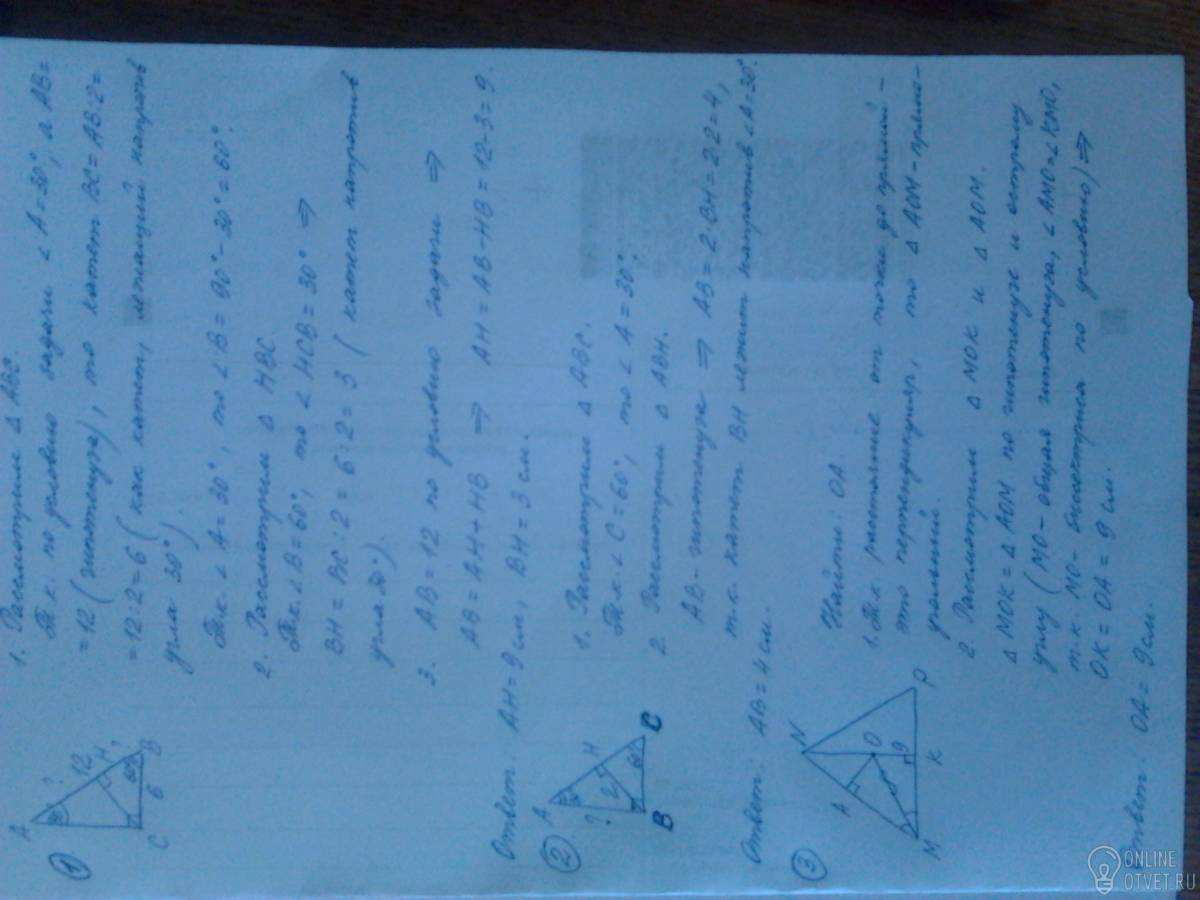 ①
A
30°
?
12
H
60°
B
6
C
1. Рассмотрим Δ ABC.
Т.к. по условию задачи ∠A=30°, а AB=
=12 (гипотенуза), то катет BC=AB:2=
=12:2=6 (как катет, лежащий напротив
угла 30°).
Т.к. ∠A=30°, то ∠B=90°-30°=60°.
2. Рассмотрим Δ HBC
Т.к. ∠B=60°, то ∠HCB=30° ⇒
BH=BC:2=6:2=3 (катет напротив
угла 30°).
3. AB=12 по условию задачи ⇒
AB=AH+HB ⇒ AH=AB-HB=12-3=9.
Ответ: AH=9см, BH=3см.
②
A
?
H
2
60°
B
C
1. Рассмотрим Δ ABC.
Т.к. ∠C=60°, то ∠A=30°.
2. Рассмотрим Δ ABH.
AB-гипотенуза ⇒ AB=2·BH=2·2=4,
т.к. катет BH лежит напротив ∠A=30°.
Ответ: AB=4см.
③
N
A
O
9
M
K
P
Найти: OA
1. Т.к. расстояние от точки до прямой -
это перпендикуляр, то Δ AOM-прямо-
угольный.
2. Рассмотрим Δ MOK и Δ AOM.
Δ MOK=Δ AOM по гипотенузе и острому
углу (MO-общая гипотенуза, ∠AMO=∠KMO,
т.к. MO-биссектриса по условию) ⇒
OK=OA=9см.
Ответ: OA=9см.
ONLINE
OTVET.RU